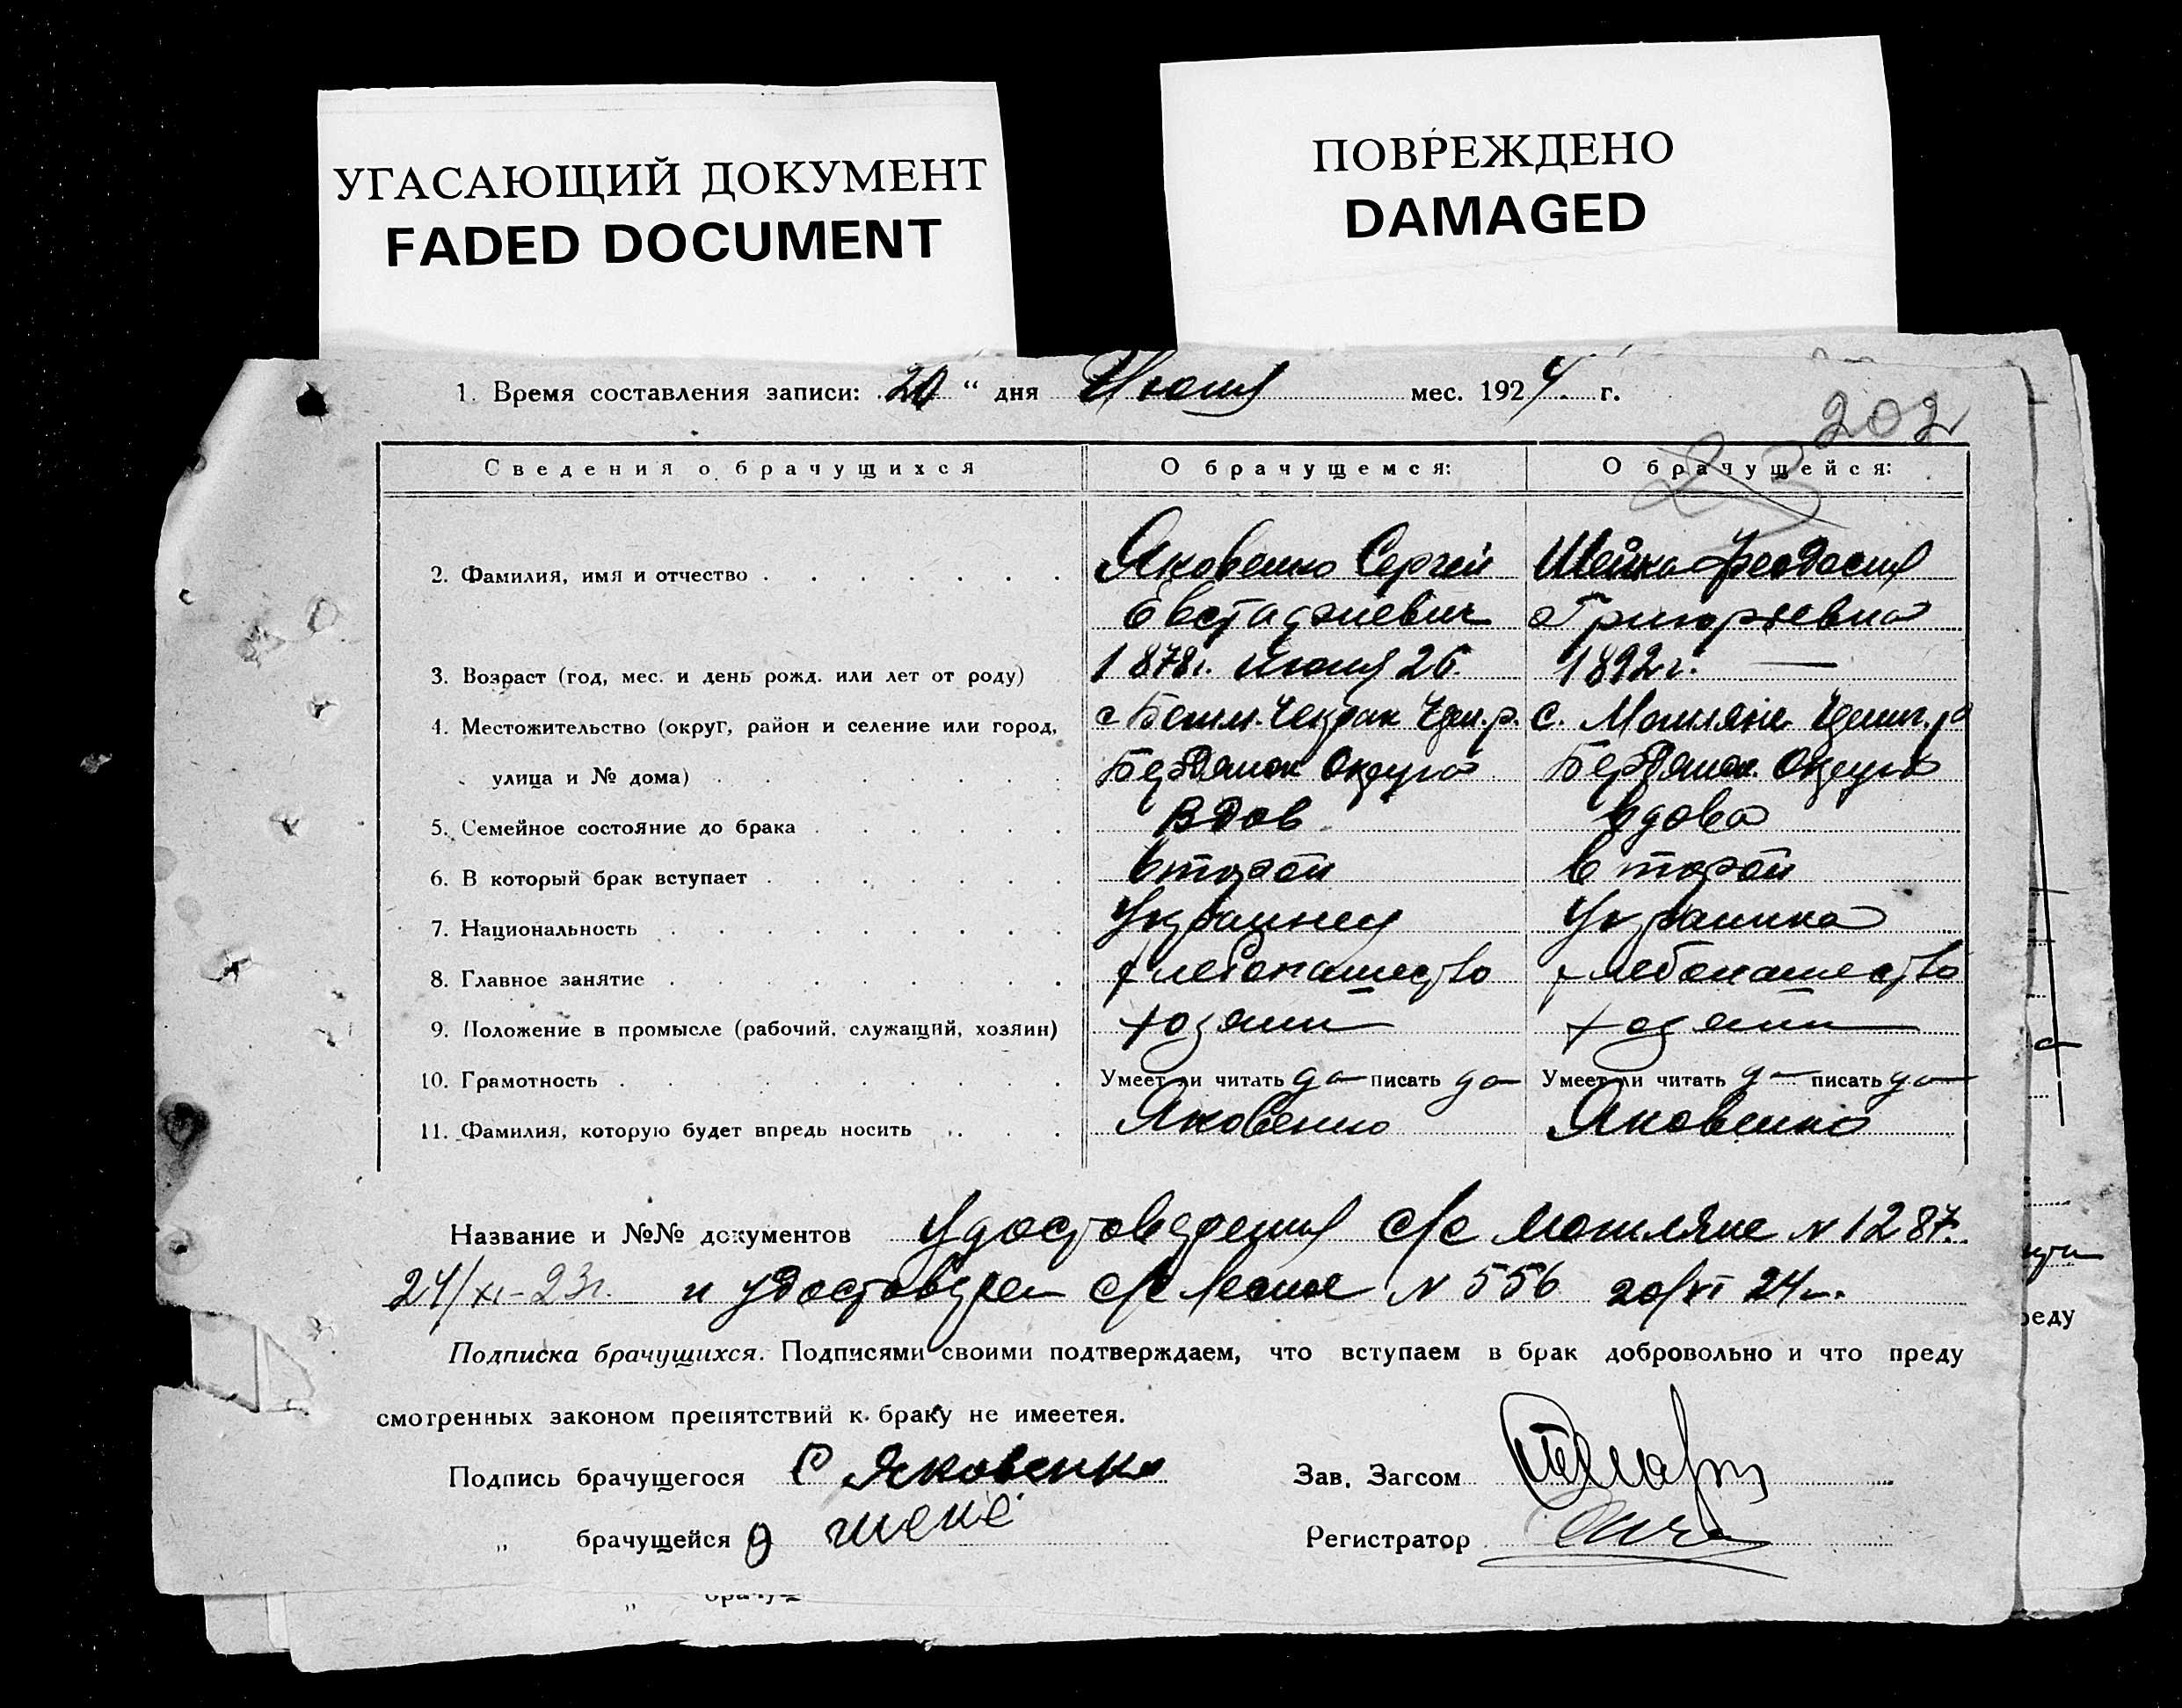 УГАСАЮЩИЙ ДОКУМЕНТ
FADED DOCUMENT
ПОВРЕЖДЕНО
DAMAGED
1. Время составления записи: 20 " дня Июня мес. 1924 г.
202
23
Сведения о брачущихся О брачущемся: О брачущейся:
2. Фамилия, имя и отчество Яковенко Сергей Шейко Феодосия
Евстафиевич Григорьевна
3. Возраст (год, мес. и день рожд. или лет от роду) 1878г. июня 26. 1892г. —
4. Местожительство (округ, район и селение или город, с. Могиляне
улица и № дома) Бердянск Округа Бердянск. Округа
5. Семейное состояние до брака Вдов вдова
6. В который брак вступает второй второй
7. Национальность Украинец Украинка
8. Главное занятие хлебопашество хлебопашество
9. Положение в промысле (рабочий, служащий, хозяин) хозяин хозяин
10. Грамотность Умеет ли читать да писать да Умеет ли читать да писать да
11. Фамилия, которую будет впредь носить Яковенко Яковенко
Название и №№ документов Удостоверения с/с Могиляне N 1287.
24/XI-23г. и удостоверен с/с N 556 20/VI 24г.
Подписка брачущихся. Подписями своими подтверждаем, что вступаем в брак добровольно и что преду
смотренных законом препятствий к браку не имеетея.
Подпись брачущегося С Яковенко Зав. Загсом
" брачущейся Регистратор
реду
"